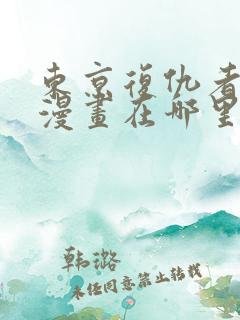 東京復仇者
漫畫在哪里
韩潞
未经同意禁止转载